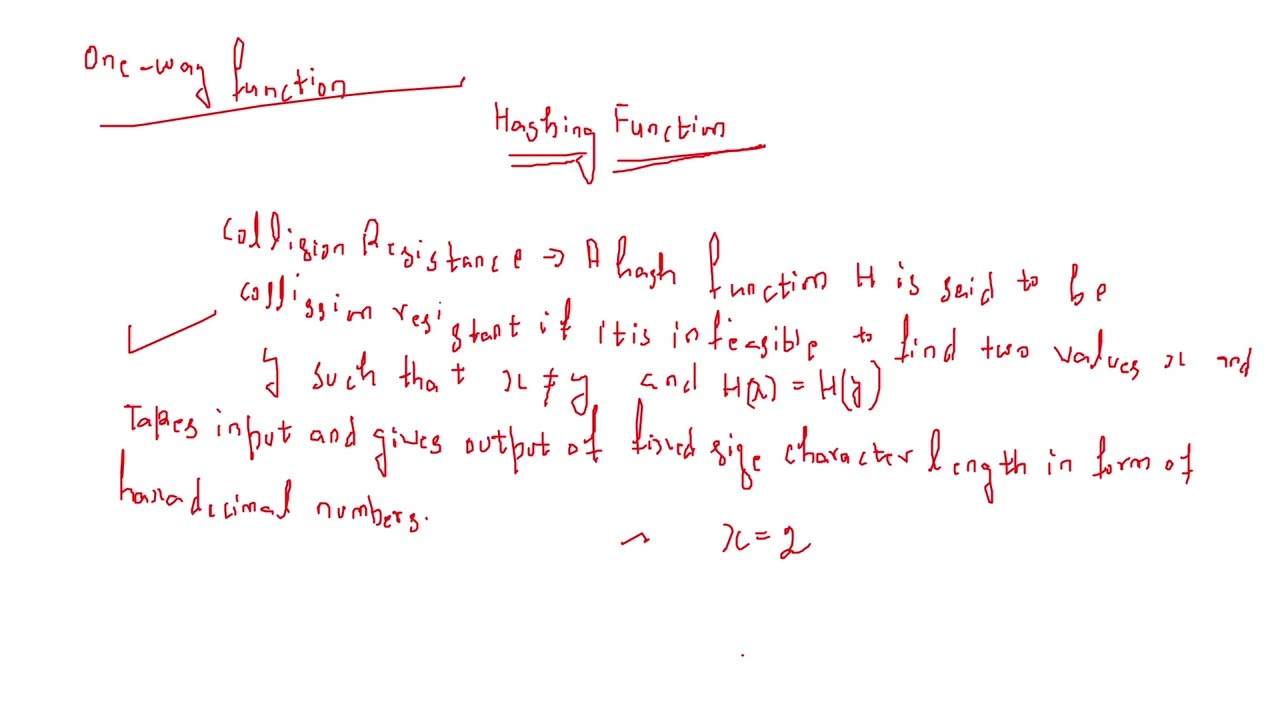 One-way function
Hashing Function
Collision Resistance → A hash function H is said to be
collission resistant if it is infeasible to find two values x and
y such that x ≠ y and H(x) = H(y)
Takes input and gives output of fixed size character length in form of
haxadecimal numbers.
x = 2